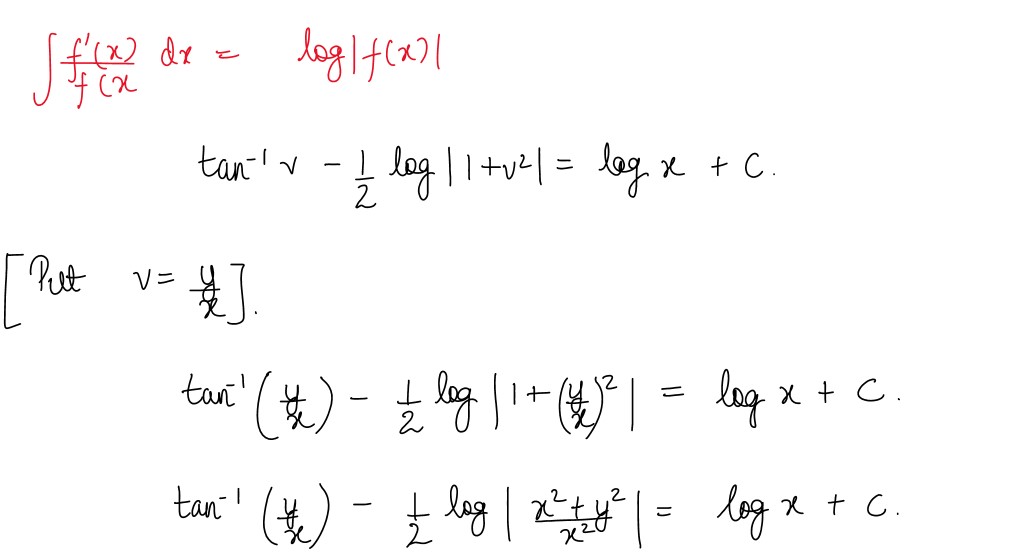 ∫ f'(x)/f(x dx = log|f(x)|
tan⁻¹ v − 1/2 log |1+v²| = log x + C.
[Put v = y/x].
tan⁻¹ (y/x) − 1/2 log |1+(y/x)²| = log x + C.
tan⁻¹ (y/x) − 1/2 log | (x²+y²)/x² | = log x + C.